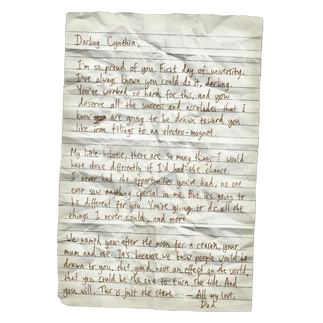 Darling Cynthia,
I'm so proud of you. First day of university.
I've always known you could do it, darling.
You've worked so hard for this, and you
deserve all the success and accolades that I
know are going to be drawn toward you
like iron filings to an electro-magnet.
My little robotic, there are so many things I would
have done differently if I'd had the chance.
I never had the opportunities you've had, no one
ever saw anything special in me. But it's going to
be different for you. You're going to do all the
things I never could, and more.
We named you after the moon for a reason, your
mum and me. It's because we knew people would be
drawn to you, that you'd have an effect on the world,
that you could be the one to turn the tide. And
you will. This is just the start. — All my love,
Dad.